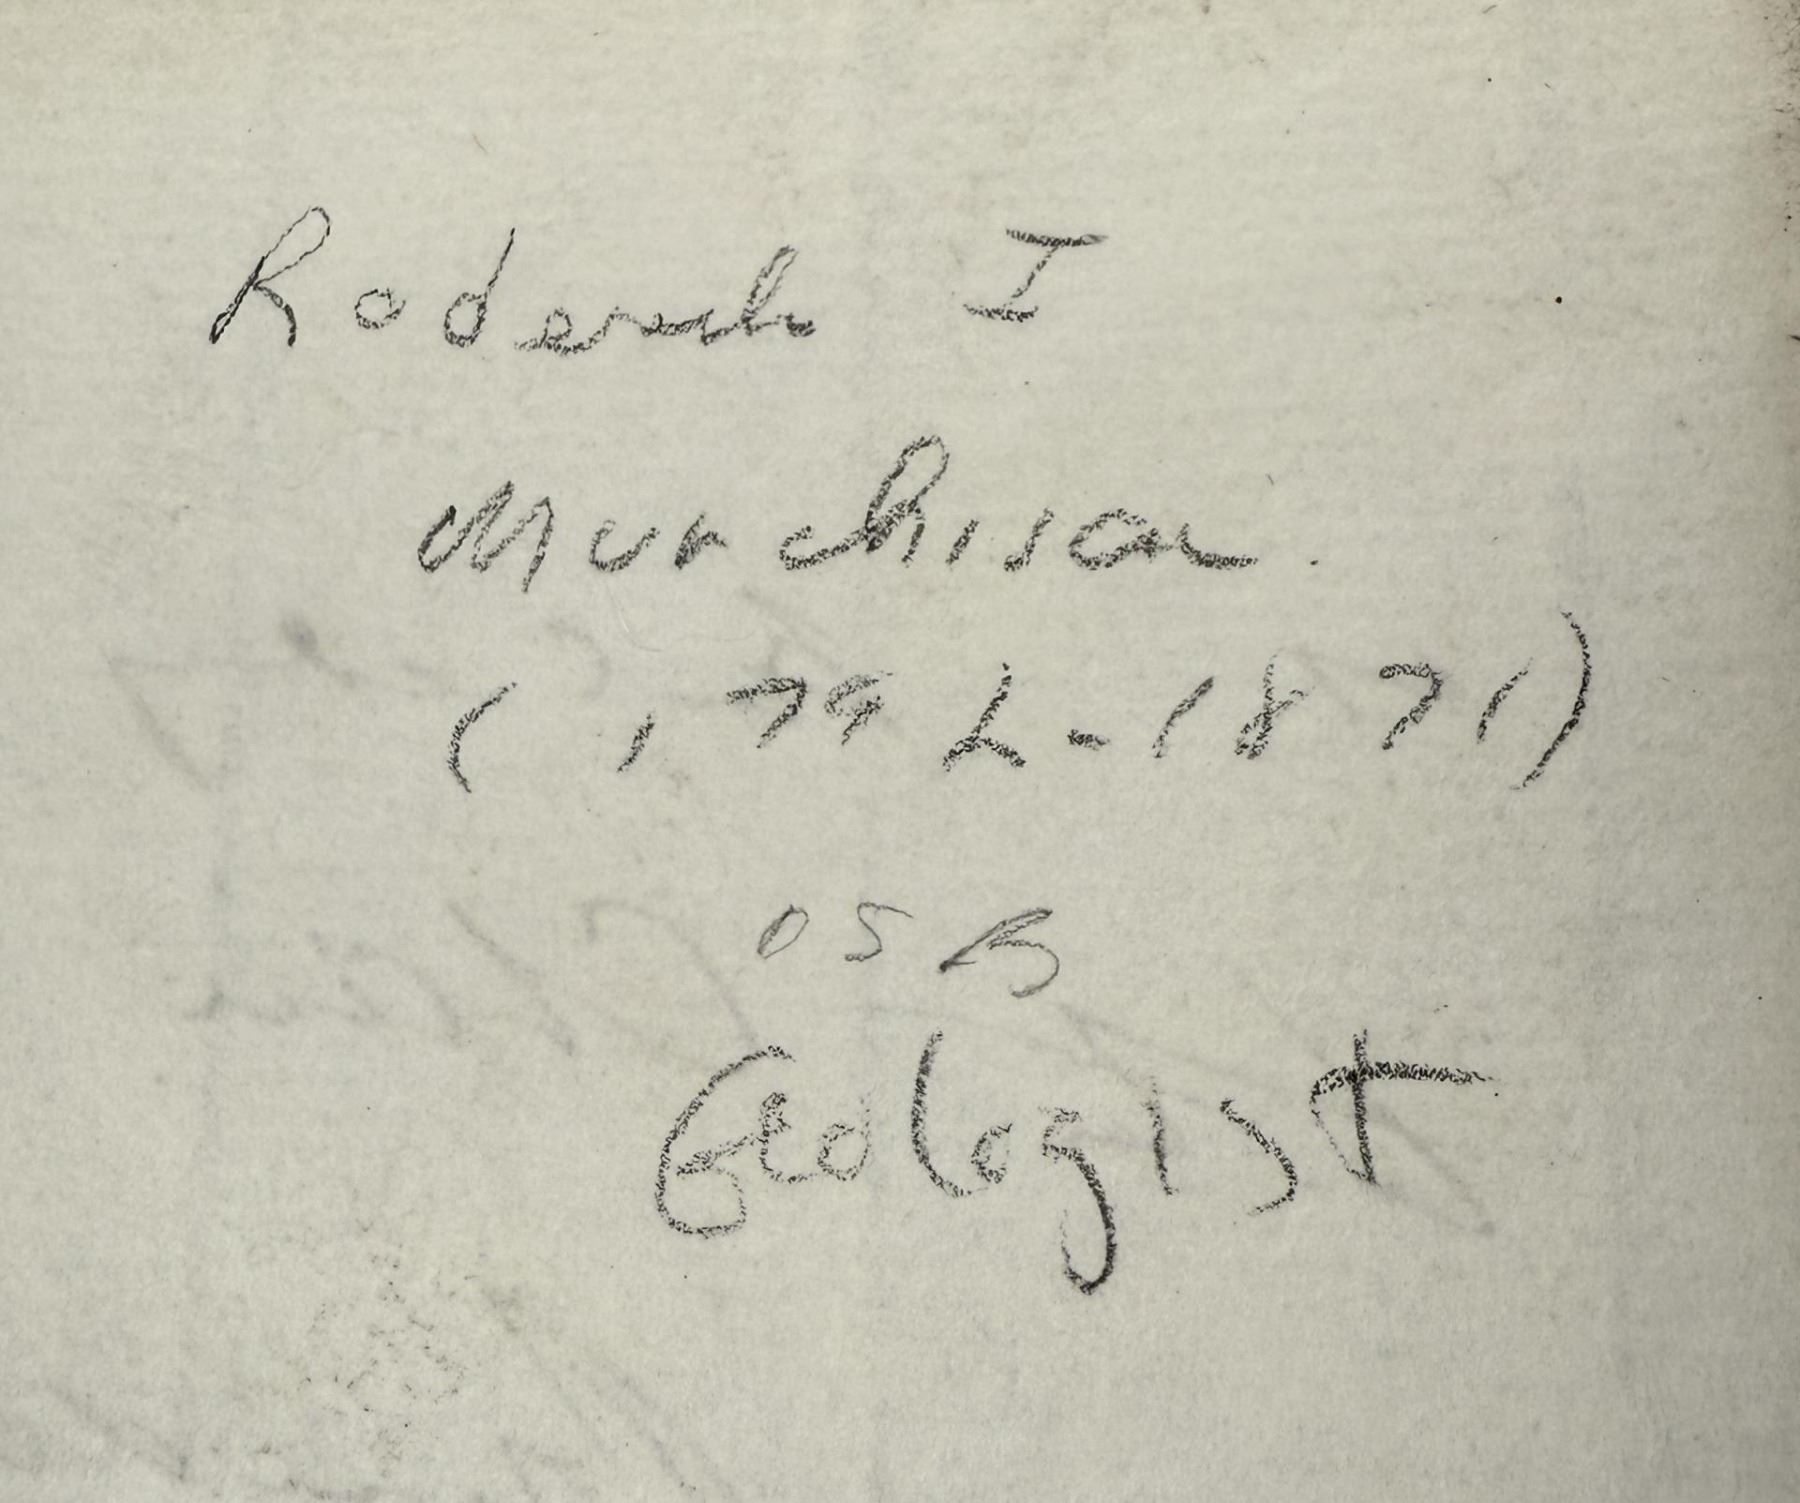 Roderick I
Murchison.
(1792-1871)
OSB
Geologist